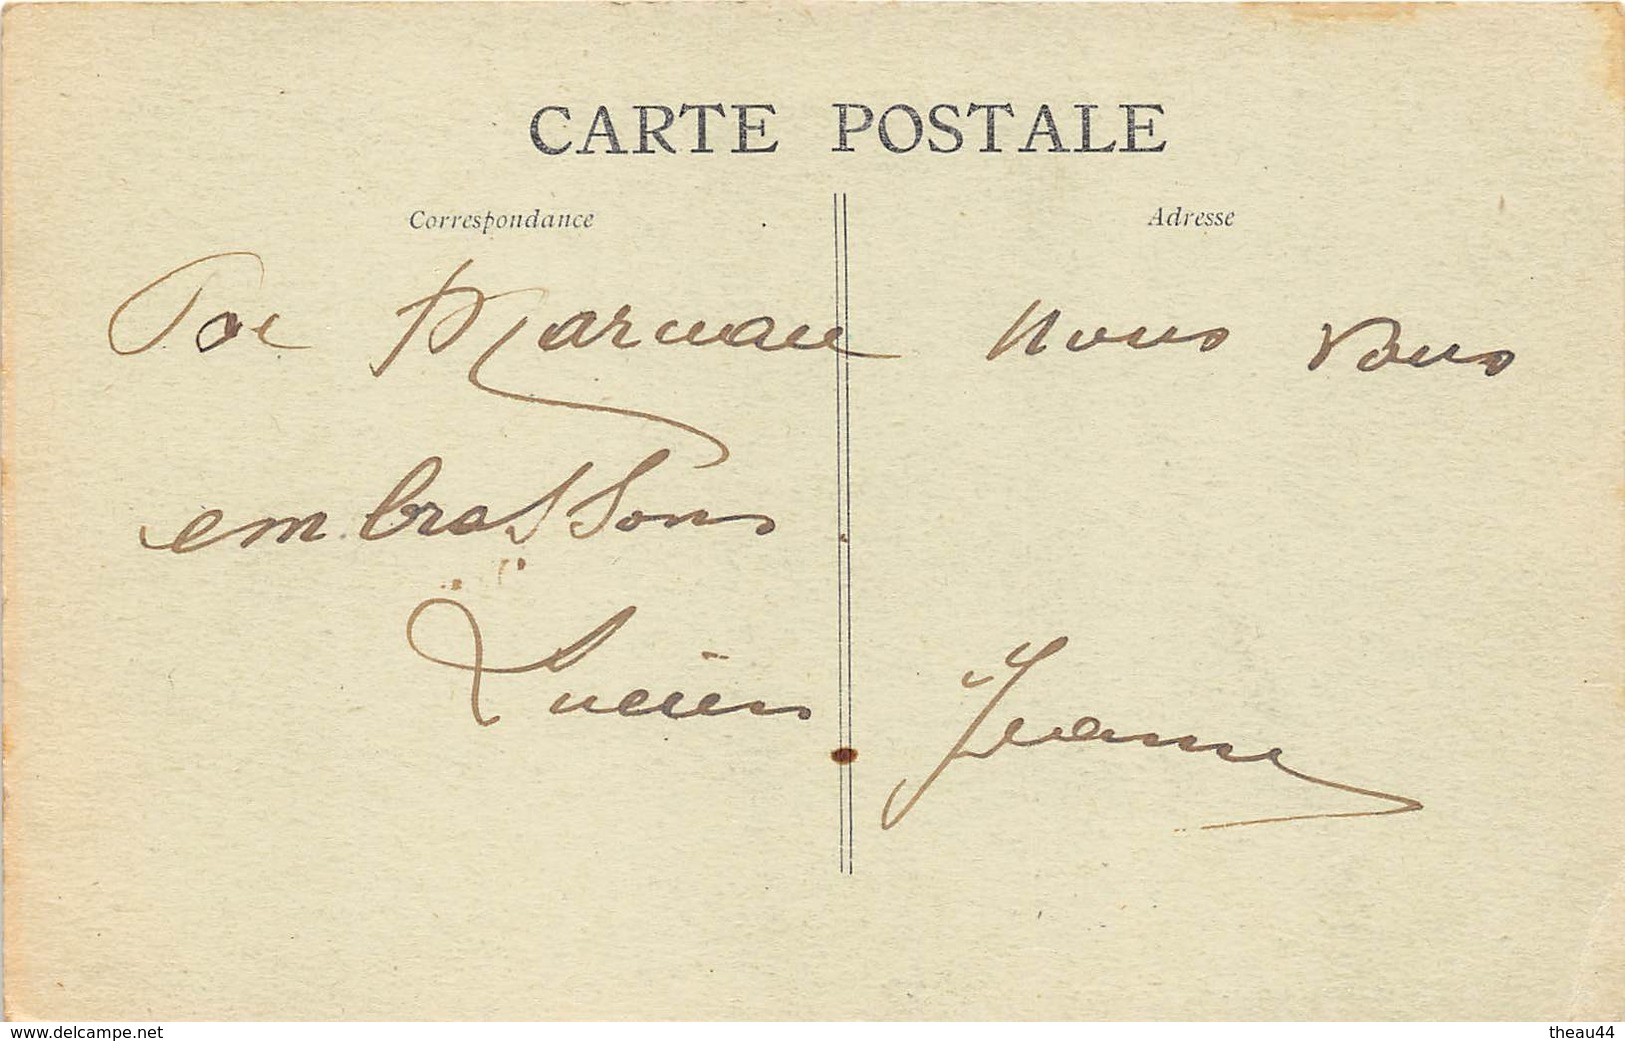 CARTE POSTALE
Correspondance
Adresse
nous vous
embrassons
Lucien Jeanne
www.delcampe.net
theau44